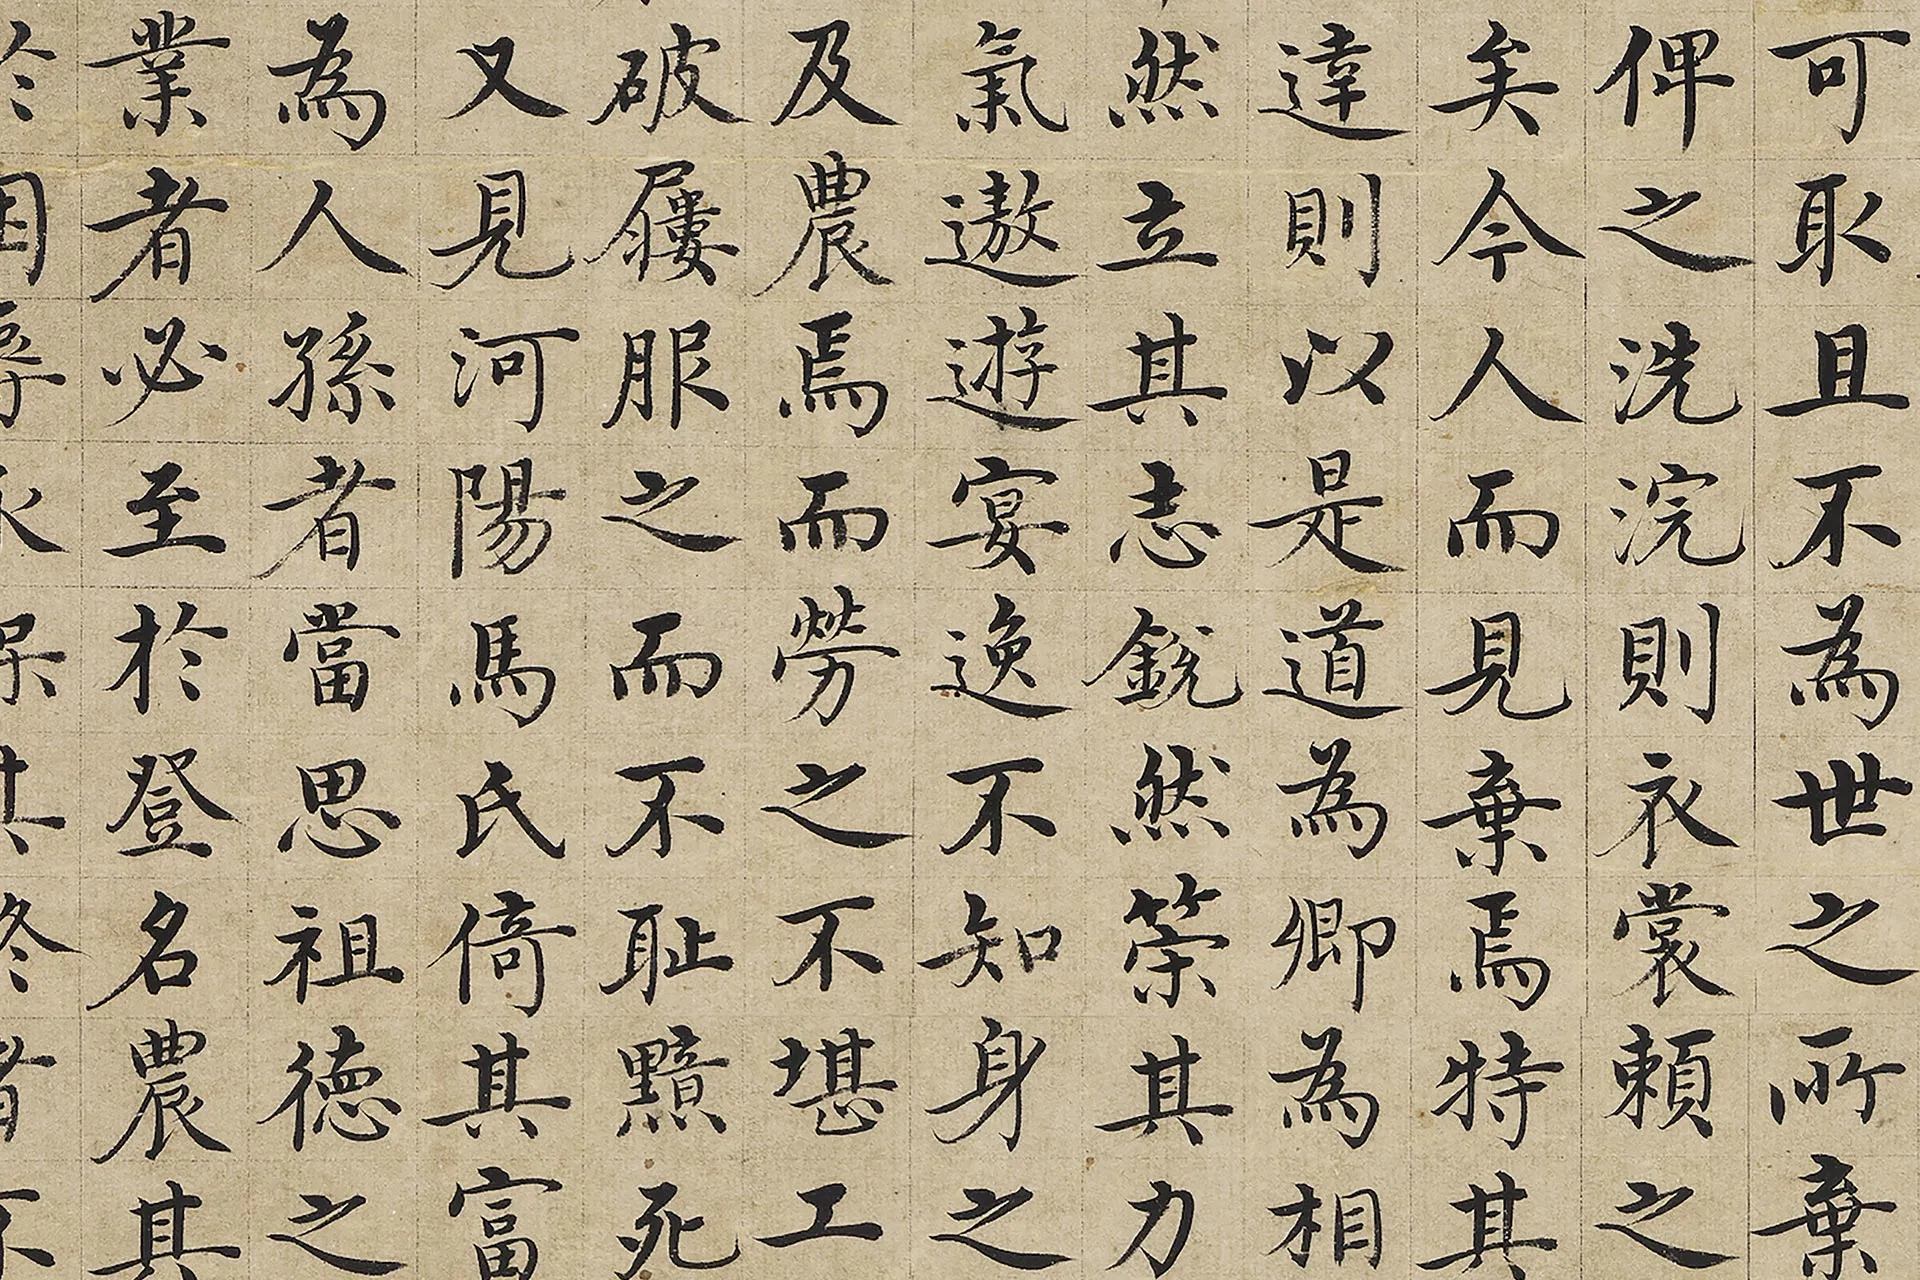 可取且不為世之所棄
俾之洗浣則衣裳頼之
矣今人而見棄焉特其
達則以是道為卿為相
然立其志銳然榮其力
氣遨遊宴逸不知身之
及農焉而勞之不堪工
破屨服之而不耻黯死
又見河陽馬氏倚其富
為人孫者當思祖德之
業者必至於登名農其